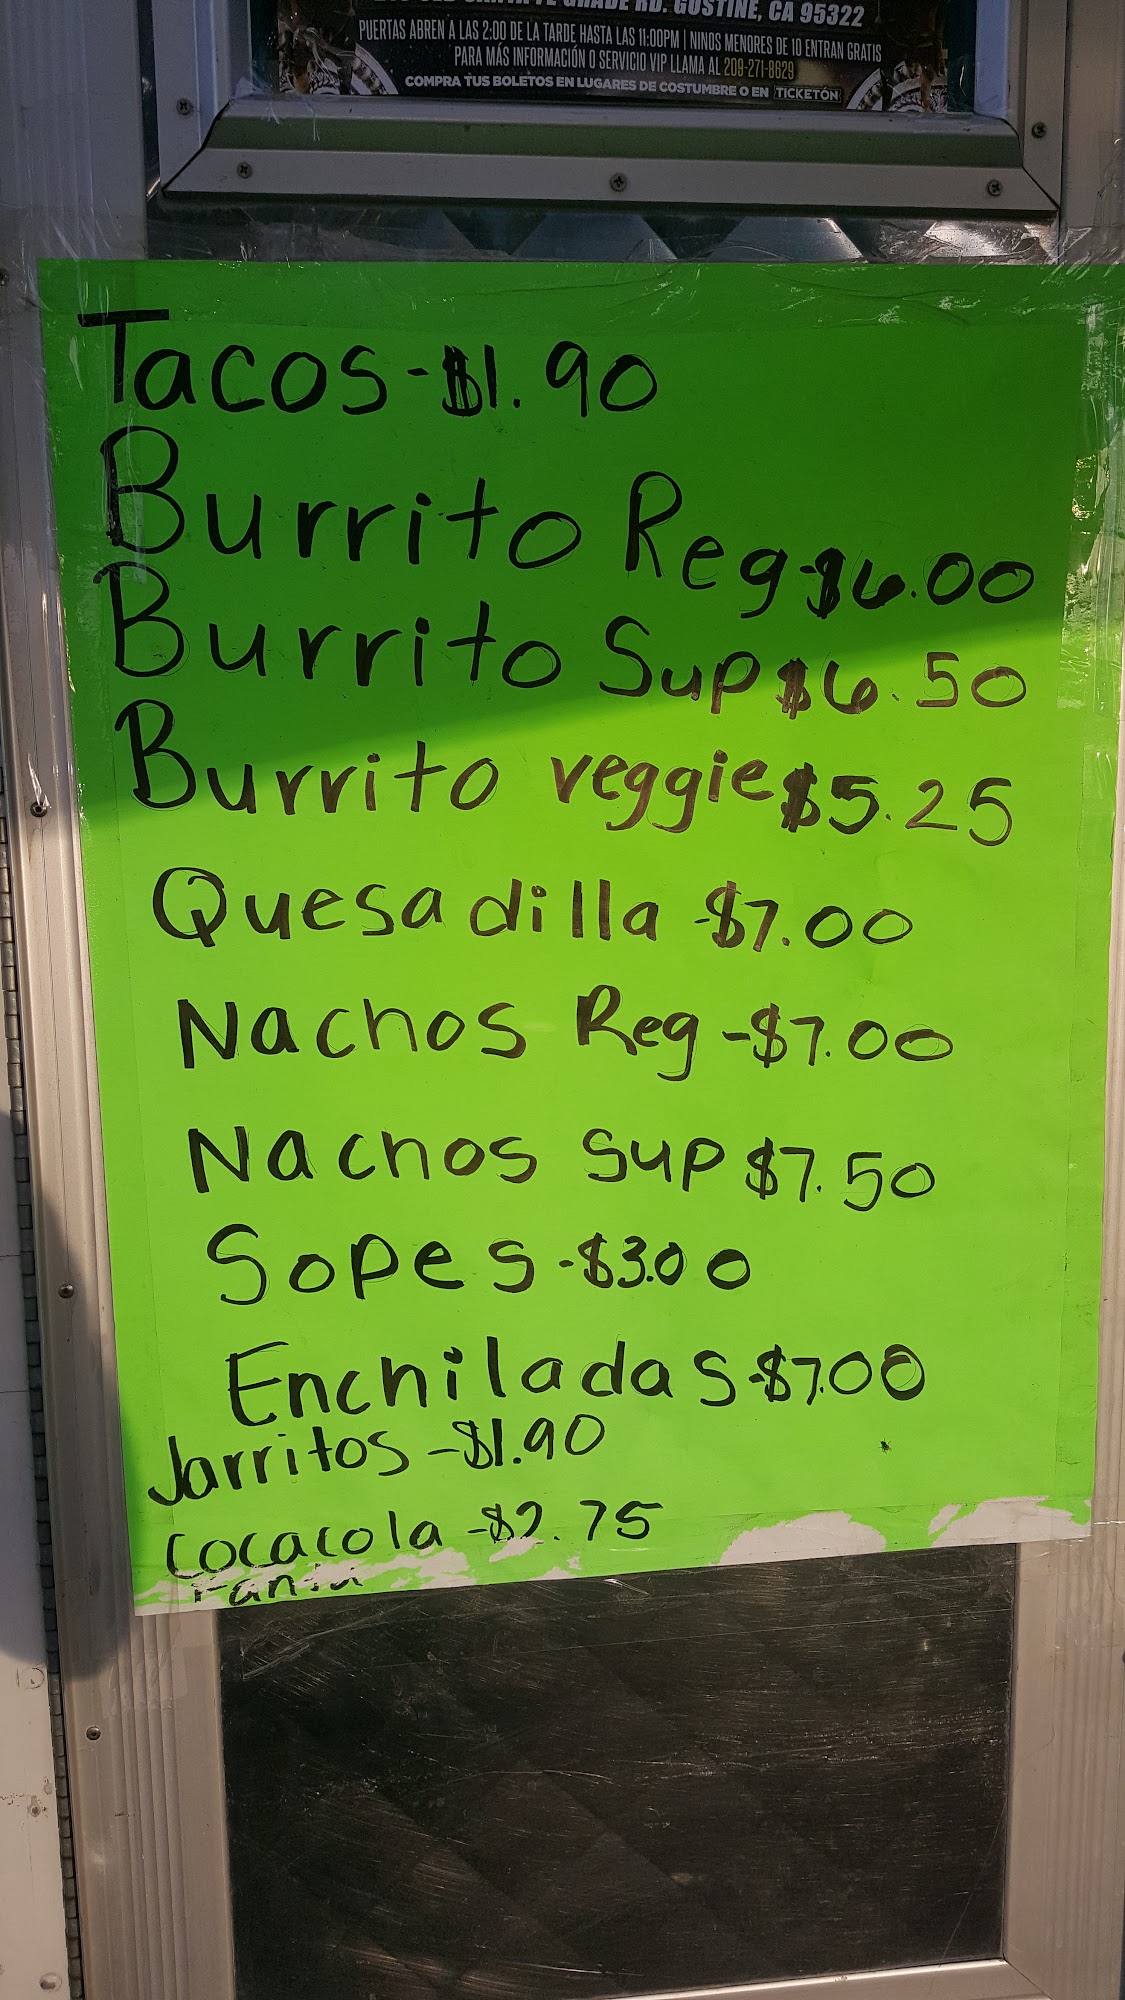 GRADE RD. GUSTINE, CA 95322
PUERTAS ABREN A LAS 2:00 DE LA TARDE HASTA LAS 11:00PM | NINOS MENORES DE 10 ENTRAN GRATIS
PARA MÁS INFORMACIÓN O SERVICIO VIP LLAMA AL 209-271-8629
COMPRA TUS BOLETOS EN LUGARES DE COSTUMBRE O EN TICKETÓN
Tacos-$1.90
Burrito Reg-$6.00
Burrito Sup $6.50
Burrito veggie $5.25
Quesadilla -$7.00
Nachos Reg -$7.00
Nachos sup $7.50
Sopes-$3.00
Enchiladas-$7.00
Jarritos -$1.90
Cocacola -$2.75
Fanta